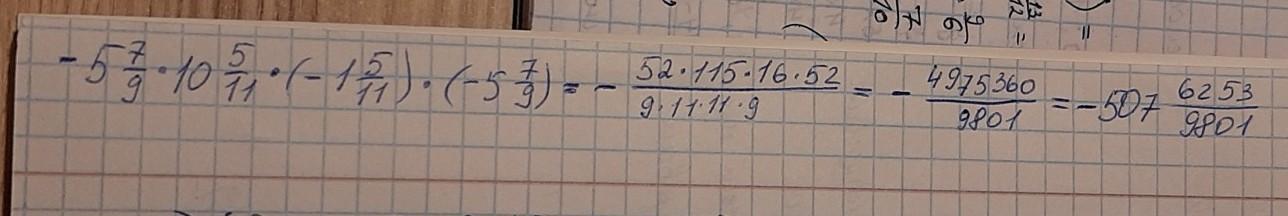 -5 7/9 · 10 5/11 · (-1 5/11) · (-5 7/9) = - 52·115·16·52 / 9·11·11·9 = - 4975360 / 9801 = -507 6253 / 9801